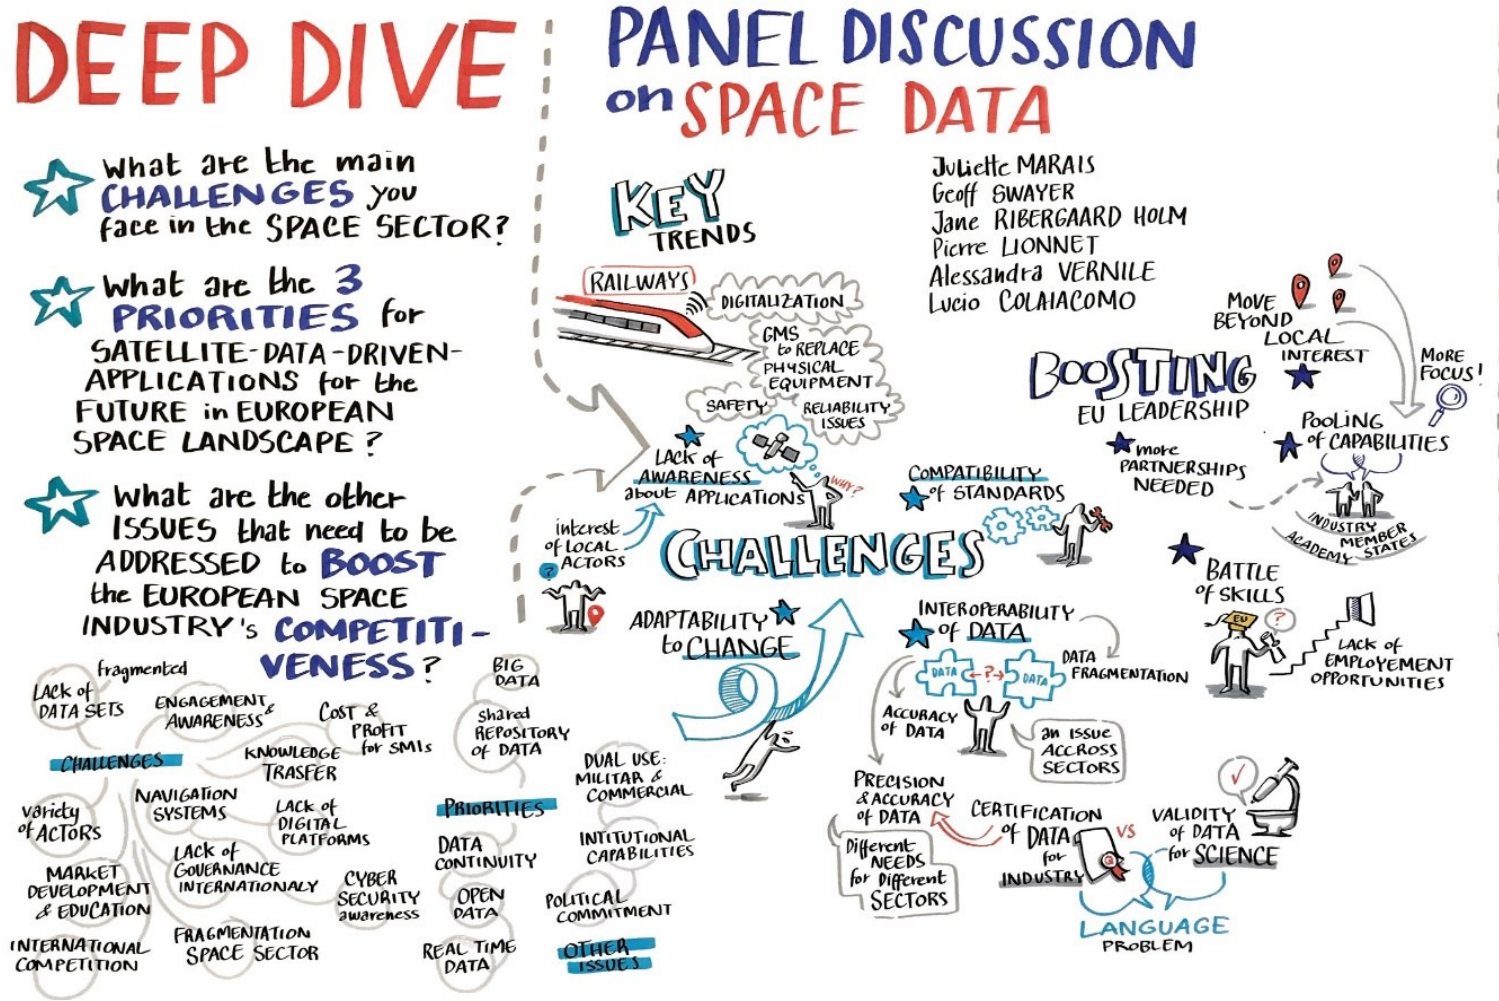 DEEP DIVE
What are the main
CHALLENGES you
face in the SPACE SECTOR?
What are the 3
PRIORITIES for
SATELLITE-DATA-DRIVEN-
APPLICATIONS for the
FUTURE in EUROPEAN
SPACE LANDSCAPE?
What are the other
ISSUES that need to be
ADDRESSED to BOOST
the EUROPEAN SPACE
INDUSTRY's COMPETITI-
VENESS?
fragmented
LACK of
DATA SETS
ENGAGEMENT &
AWARENESS
COST &
PROFIT
for SMIs
KNOWLEDGE
TRASFER
CHALLENGES
variety
of ACTORS
NAVIGATION
SYSTEMS
LACK of
DIGITAL
PLATFORMS
MARKET
DEVELOPMENT
& EDUCATION
LACK of
GOVERNANCE
INTERNATIONALY
CYBER
SECURITY
awareness
INTERNATIONAL
COMPETITION
FRAGMENTATION
SPACE SECTOR
BIG
DATA
shared
REPOSITORY
of DATA
PRIORITIES
DATA
CONTINUITY
OPEN
DATA
REAL TIME
DATA
DUAL USE:
MILITAR &
COMMERCIAL
INTITUTIONAL
CAPABILITIES
POLITICAL
COMMITMENT
OTHER
ISSUES
PANEL DISCUSSION
on SPACE DATA
Juliette MARAIS
Geoff SWAYER
Jane RIBERGAARD HOLM
Pierre LIONNET
Alessandra VERNILE
Lucio COLAIACOMO
KEY
TRENDS
RAILWAYS
DIGITALIZATION
GMS
to REPLACE
PHYSICAL
EQUIPMENT
SAFETY
RELIABILITY
ISSUES
LACK of
AWARENESS
about APPLICATIONS
WHY?
interest
of LOCAL
ACTORS
?
CHALLENGES
COMPATIBILITY
of STANDARDS
ADAPTABILITY
to CHANGE
INTEROPERABILITY
of DATA
DATA
FRAGMENTATION
DATA ? DATA
ACCURACY
of DATA
an ISSUE
ACCROSS
SECTORS
PRECISION
& ACCURACY
of DATA
Different
NEEDS
for Different
SECTORS
CERTIFICATION
of DATA
for
INDUSTRY
Q
VS
VALIDITY
of DATA
for SCIENCE
LANGUAGE
PROBLEM
BOOSTING
EU LEADERSHIP
MOVE
BEYOND
LOCAL
INTEREST
MORE
FOCUS!
more
PARTNERSHIPS
NEEDED
POOLING
of CAPABILITIES
INDUSTRY
ACADEMY
MEMBER
STATES
BATTLE
of SKILLS
EU
?
LACK of
EMPLOYEMENT
OPPORTUNITIES